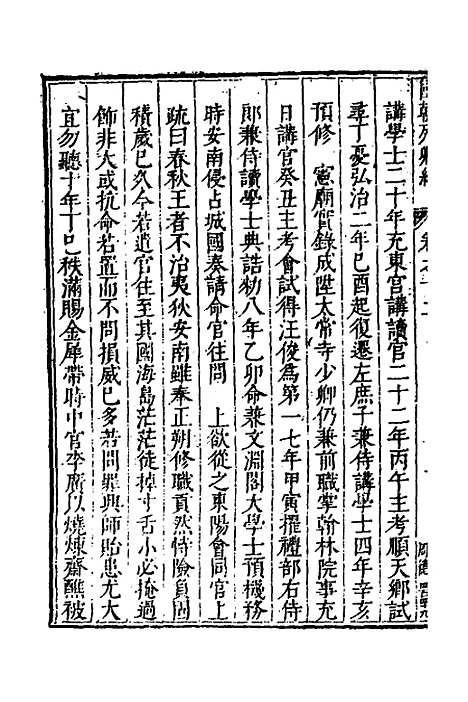 國朝列卿紀
講學士二十年充東宮講讀官二十二年丙午主考順天鄉試
尋丁憂弘治二年己酉起復遷左庶子兼侍講學士四年辛亥
預修 憲廟實錄成陞太常寺少卿仍兼前職掌翰林院事充
日講官癸丑主考會試得汪俊為第一七年甲寅擢禮部右侍
郎兼侍讀學士典誥勑八年乙卯命兼文淵閣大學士預機務
時安南侵占城國奏請命官往問 上欲從之東陽會同官上
疏曰春秋王者不治夷狄安南雖奉正朔修職貢然恃險負固
積歲已久今若遣官往至其國海島茫茫徒掉寸舌小必掩過
飾非大或抗命若置而不問損威已多若問罪興師貽患尤大
宜勿聽十年丁巳秩滿賜金犀帶時中官李廣以燒煉齋醮被